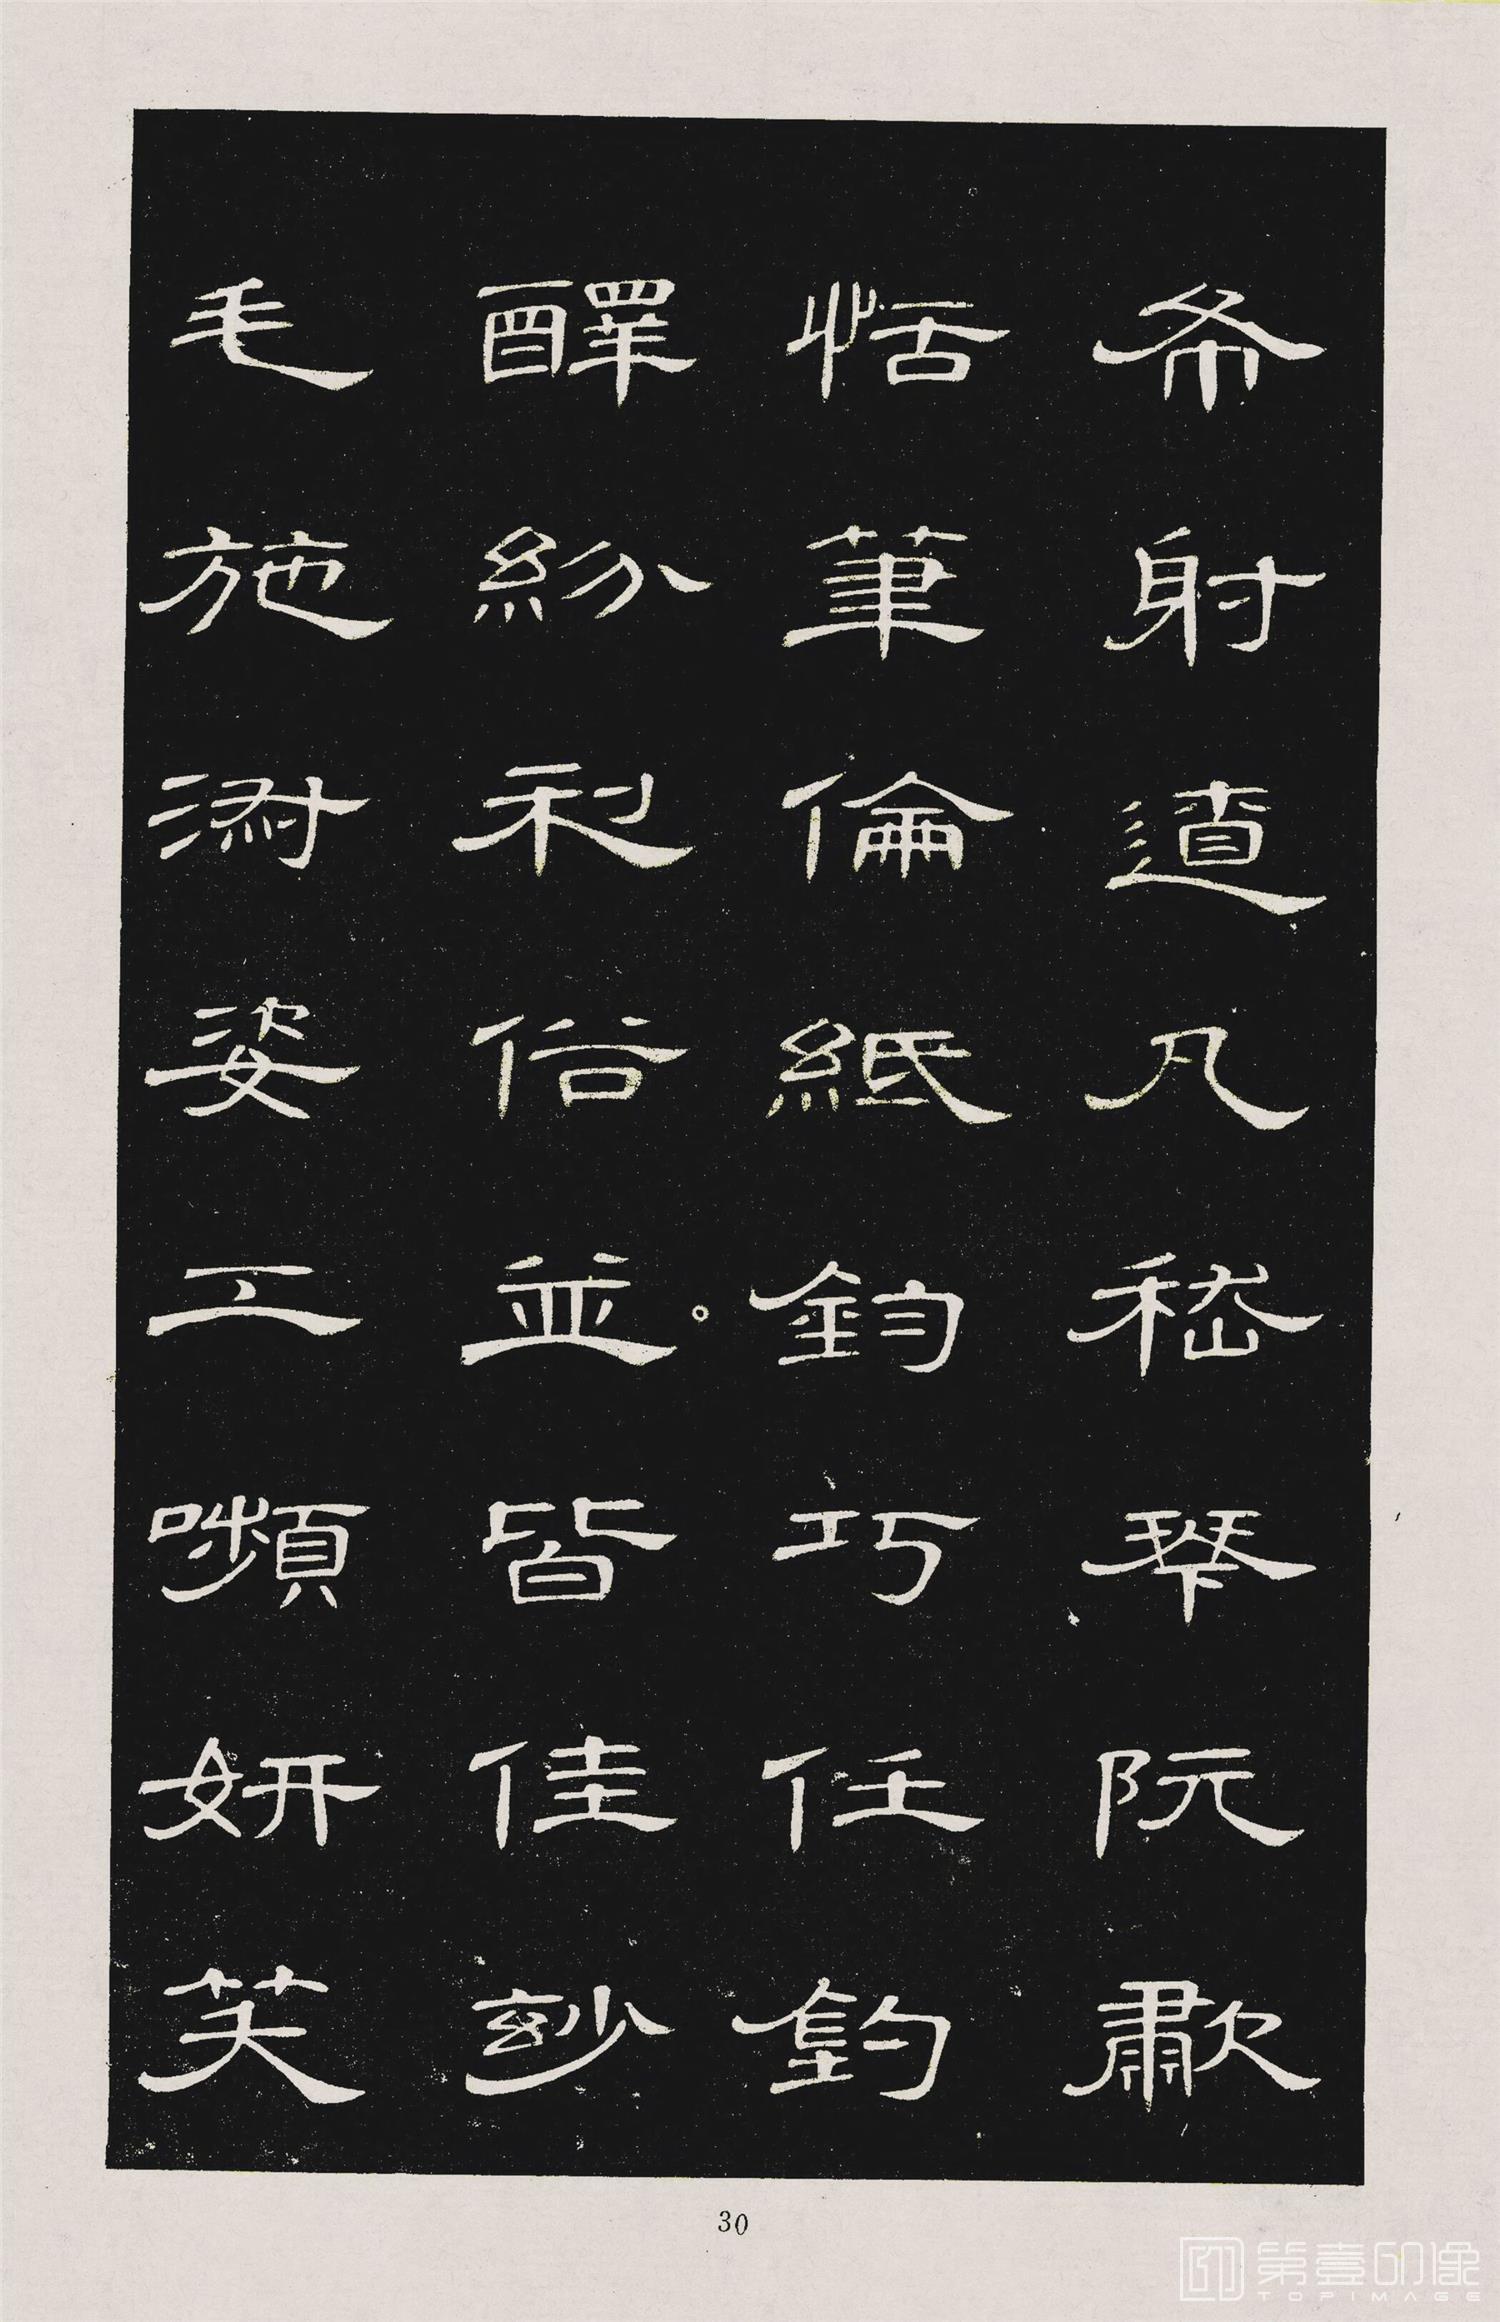 布射遼丸嵇琴阮歗
恬筆倫紙鈞巧任釣
醳紛利俗並皆佳玅
毛施淑姿工嚬妍笑
30
第壹印像
TOPIMAGE